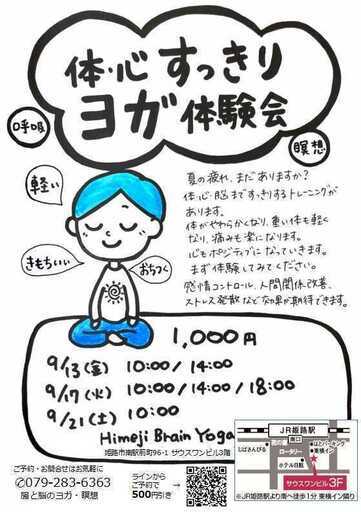 体・心 すっきり
ヨガ 体験会
呼吸
瞑想
軽い
きもちいい
おちつく
夏の疲れ、まだありますか？
体・心・脳まですっきりするトレーニングが
あります。
体がやわらかくなり、重い体も軽く
なり、痛みも楽になります。
心もポジティブになっていきます。
まず体験してみてください。
感情コントロール、人間関係改善、
ストレス発散など効果が期待できます。
1,000円
9/13(金) 10:00/14:00
9/17(火) 10:00/14:00/18:00
9/21(土) 10:00
Himeji Brain Yoga
姫路市南駅前町96-1 サウスワンビル3階
ご予約・お問合せはお気軽に
079-283-6363
腸と脳のヨガ・瞑想
ラインから
ご予約で
500円引き
JR姫路駅
南口
ロータリー
ホテル日航
東横イン
サウスワンビル 3F
※JR姫路駅より南へ徒歩1分 東横イン隣り